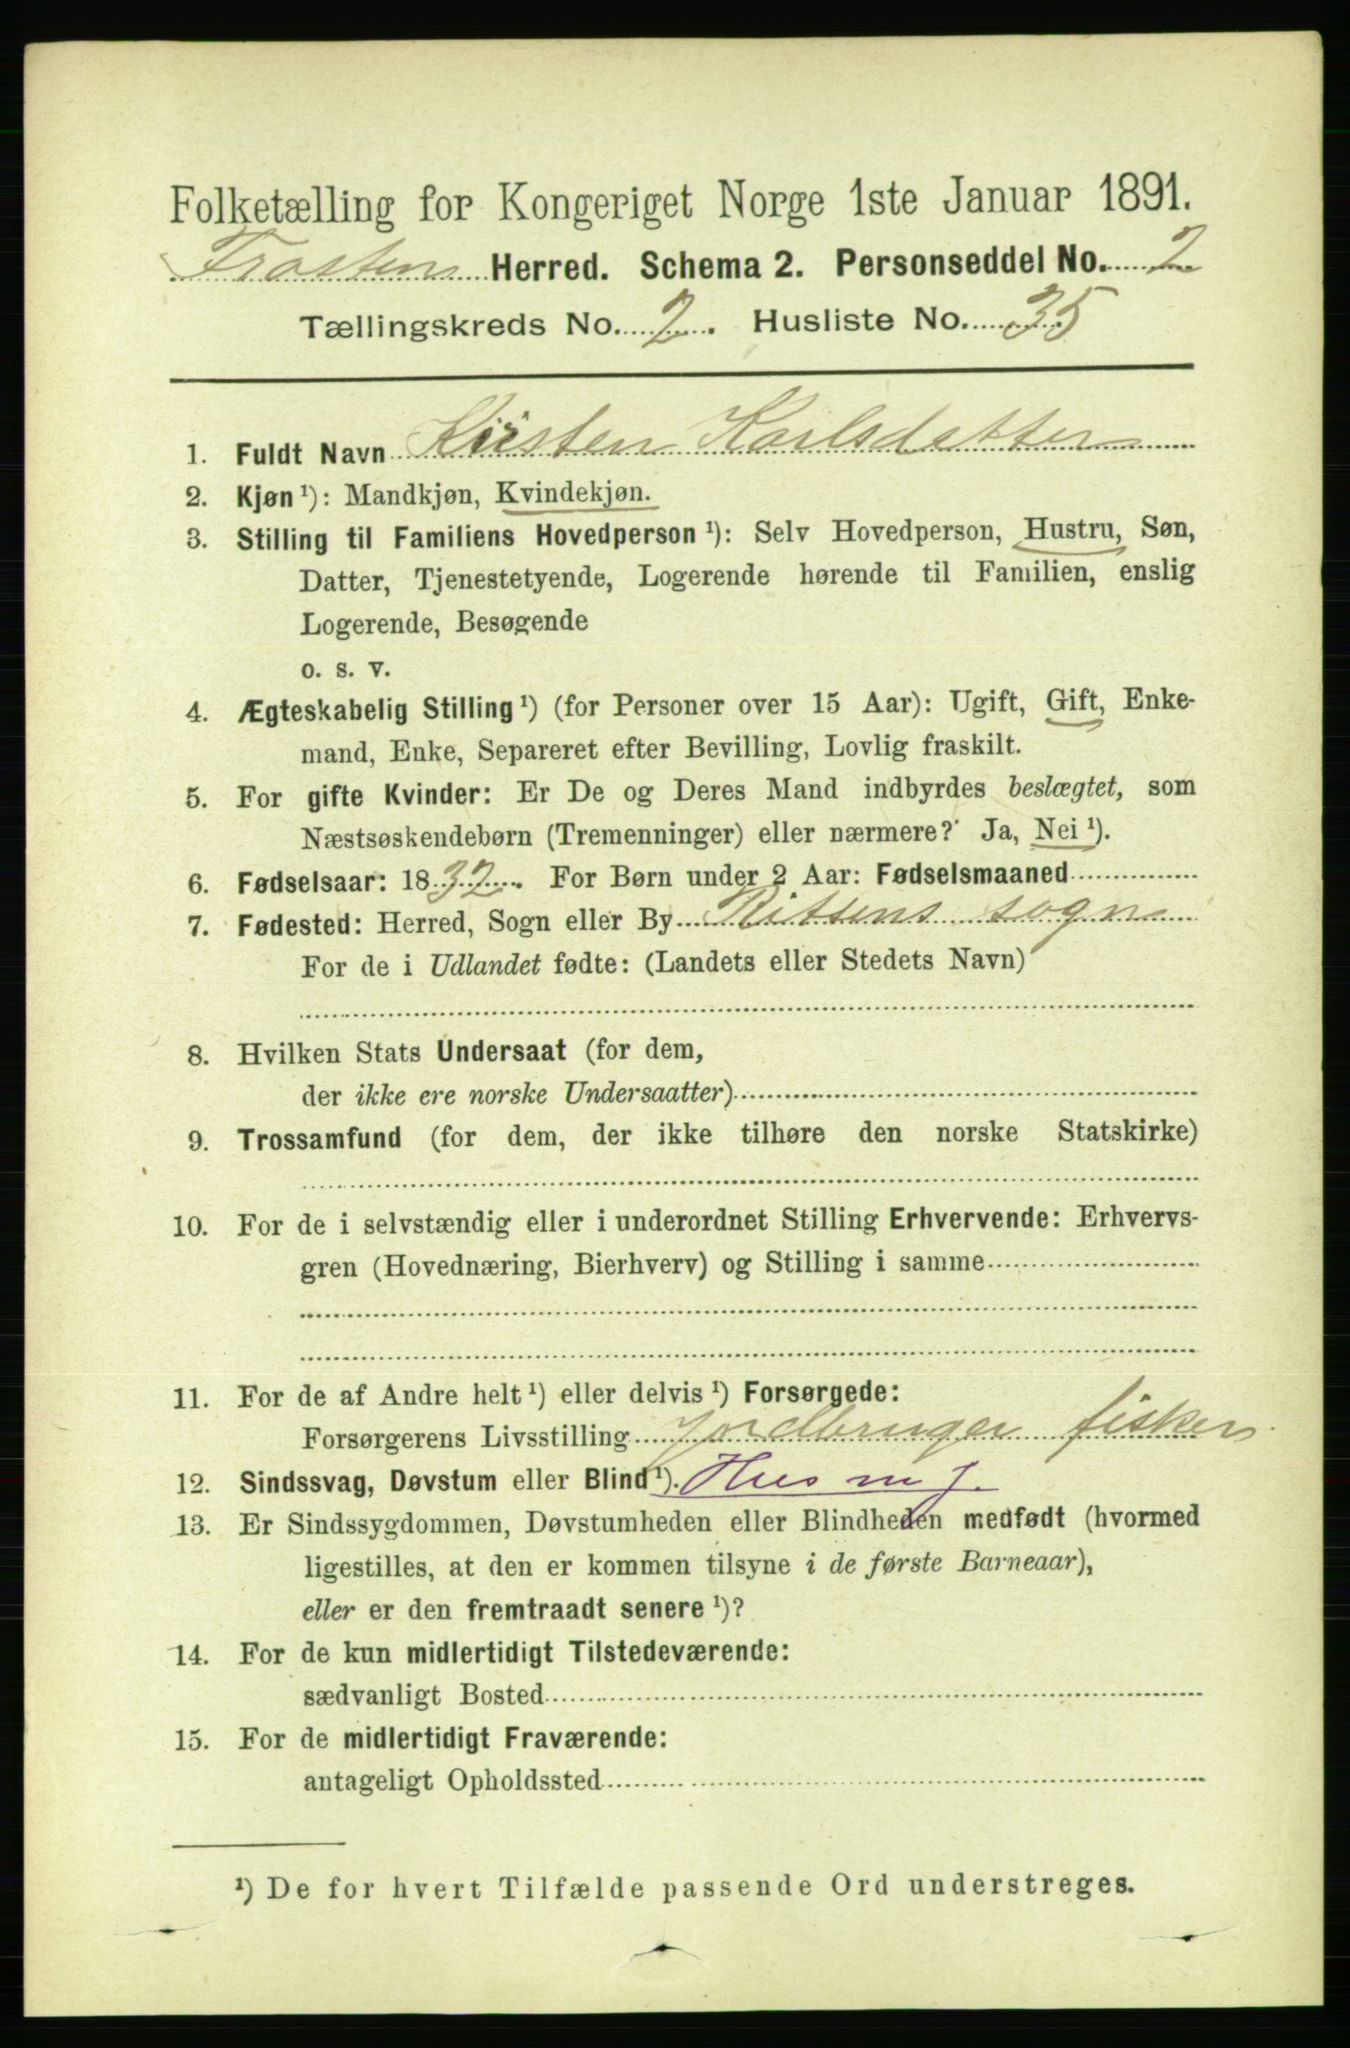 Folketælling for Kongeriget Norge 1ste Januar 1891.
Frosten Herred. Schema 2. Personseddel No. 2
Tællingskreds No. 2. Husliste No. 35
1. Fuldt Navn Kirsten Karlsdatter
2. Kjøn ¹): Mandkjøn, Kvindekjøn.
3. Stilling til Familiens Hovedperson ¹): Selv Hovedperson, Hustru, Søn,
Datter, Tjenestetyende, Logerende hørende til Familien, enslig
Logerende, Besøgende
o. s. v.
4. Ægteskabelig Stilling ¹) (for Personer over 15 Aar): Ugift, Gift, Enke-
mand, Enke, Separeret efter Bevilling, Lovlig fraskilt.
5. For gifte Kvinder: Er De og Deres Mand indbyrdes beslægtet, som
Næstsøskendebørn (Tremenninger) eller nærmere? Ja, Nei ¹).
6. Fødselsaar: 1832. For Børn under 2 Aar: Fødselsmaaned
7. Fødested: Herred, Sogn eller By Rissens sogn
For de i Udlandet fødte: (Landets eller Stedets Navn)
8. Hvilken Stats Undersaat (for dem,
der ikke ere norske Undersaatter)
9. Trossamfund (for dem, der ikke tilhøre den norske Statskirke)
10. For de i selvstændig eller i underordnet Stilling Erhvervende: Erhvervs-
gren (Hovednæring, Bierhverv) og Stilling i samme
11. For de af Andre helt ¹) eller delvis ¹) Forsørgede:
Forsørgerens Livsstilling Jordbruger fisker
12. Sindssvag, Døvstum eller Blind ¹). Husm j.
13. Er Sindssygdommen, Døvstumheden eller Blindheden medfødt (hvormed
ligestilles, at den er kommen tilsyne i de første Barneaar),
eller er den fremtraadt senere ¹)?
14. For de kun midlertidigt Tilstedeværende:
sædvanligt Bosted
15. For de midlertidigt Fraværende:
antageligt Opholdssted
¹) De for hvert Tilfælde passende Ord understreges.